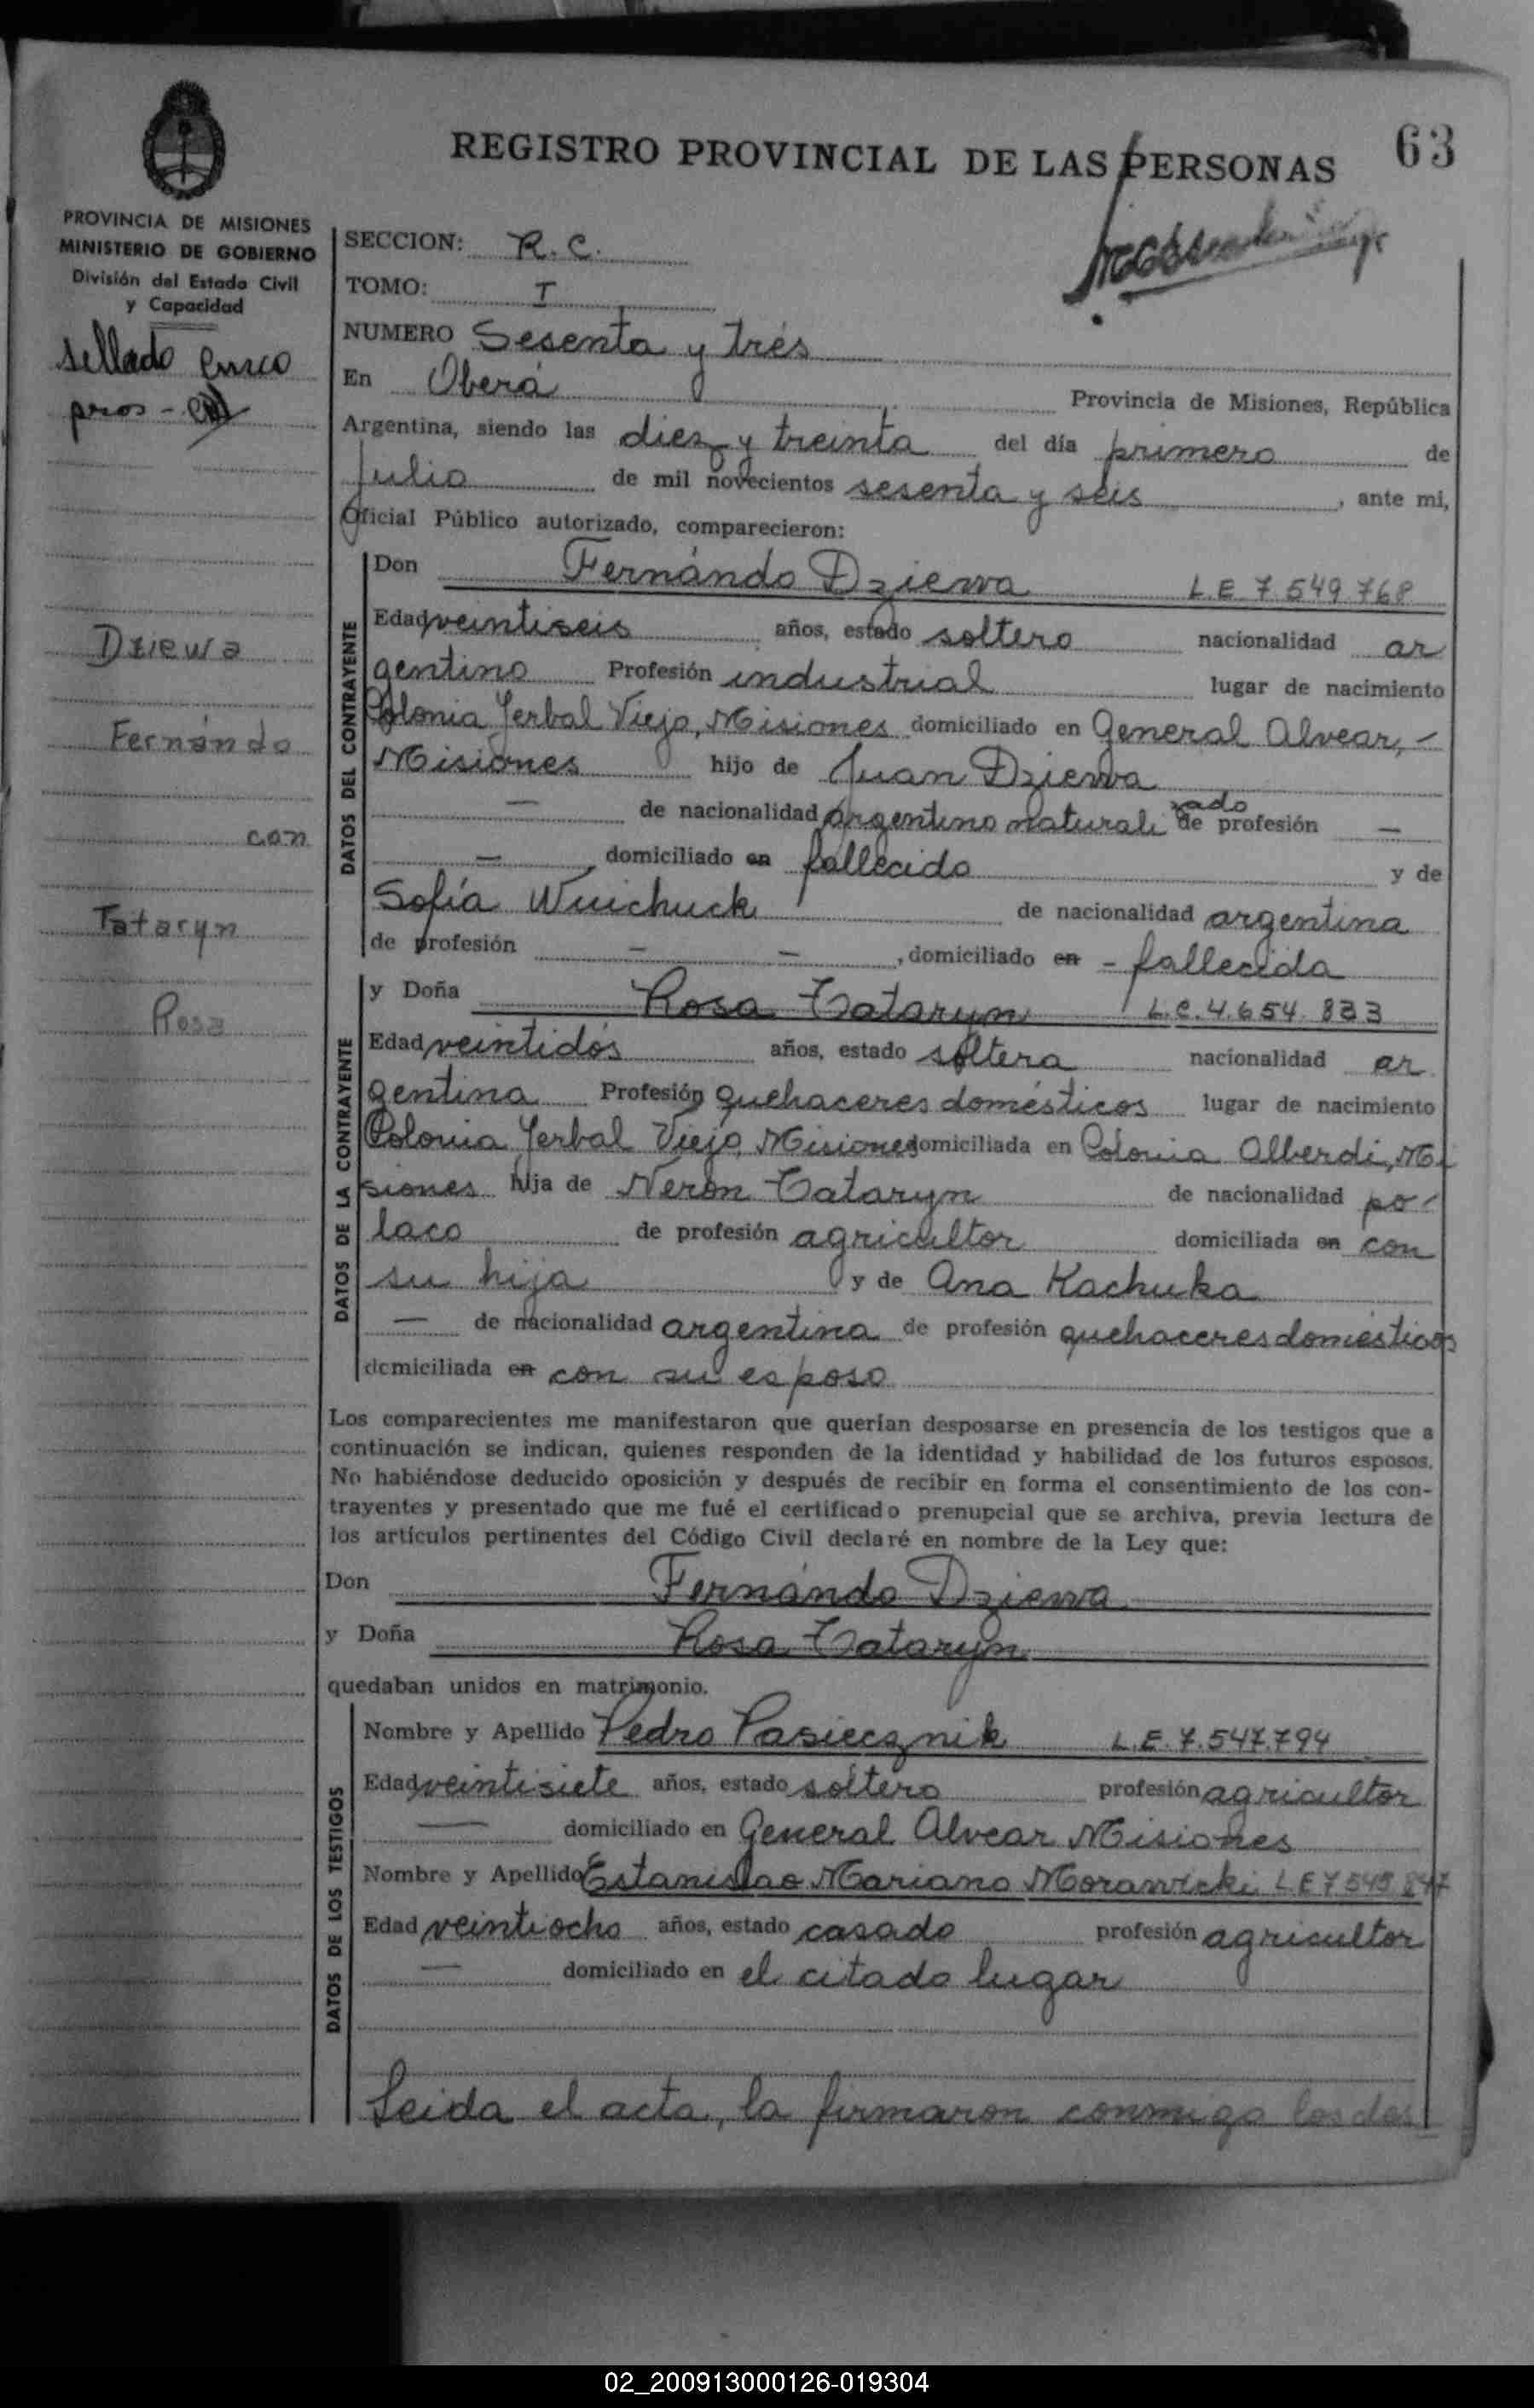 REGISTRO PROVINCIAL DE LAS PERSONAS 63
PROVINCIA DE MISIONES
MINISTERIO DE GOBIERNO
División del Estado Civil
y Capacidad
sellado cinco
pesos -
Dziewa
Fernándo
con
Tataryn
Rosa
SECCION: R.C.
TOMO: I
NUMERO Sesenta y trés
En Oberá Provincia de Misiones, República
Argentina, siendo las diez y treinta del día primero de
Julio de mil novecientos sesenta y seis, ante mi,
Oficial Público autorizado, comparecieron:
DATOS DEL CONTRAYENTE
Don Fernándo Dziewa L.E 7.549.768
Edad veintiseis años, estado soltero nacionalidad ar
gentino Profesión industrial lugar de nacimiento
Colonia Yerbal Viejo, Misiones domiciliado en General Alvear, -
Misiones hijo de Juan Dziewa
— de nacionalidad argentino naturalizado de profesión —
— domiciliado en fallecido y de
Sofía Wuichuck de nacionalidad argentina
de profesión — —, domiciliado en - fallecida
DATOS DE LA CONTRAYENTE
y Doña Rosa Tataryn L.C.4.654.833
Edad veintidós años, estado soltera nacionalidad ar
gentina Profesión quehaceres domésticos lugar de nacimiento
Colonia Yerbal Viejo, Misiones domiciliada en Colonia Alberdi, Mi
siones hija de Nerón Tataryn de nacionalidad po-
laco de profesión agricultor domiciliada en con
su hija y de Ana Kachuka
— de nacionalidad argentina de profesión quehaceres domésticos
domiciliada en con su esposo
Los comparecientes me manifestaron que querían desposarse en presencia de los testigos que a
continuación se indican, quienes responden de la identidad y habilidad de los futuros esposos.
No habiéndose deducido oposición y después de recibir en forma el consentimiento de los con-
trayentes y presentado que me fué el certificado prenupcial que se archiva, previa lectura de
los artículos pertinentes del Código Civil declaré en nombre de la Ley que:
Don Fernándo Dziewa
y Doña Rosa Tataryn
quedaban unidos en matrimonio.
DATOS DE LOS TESTIGOS
Nombre y Apellido Pedro Pasiecznik L.E.7.547.794
Edad veintisiete años, estado soltero profesión agricultor
— domiciliado en General Alvear Misiones
Nombre y Apellido Estanislao Mariano Morawicki L.E 7 545 847
Edad veintiocho años, estado casado profesión agricultor
— domiciliado en el citado lugar
Leida el acta, la firmaron conmigo los dos
02_200913000126-019304